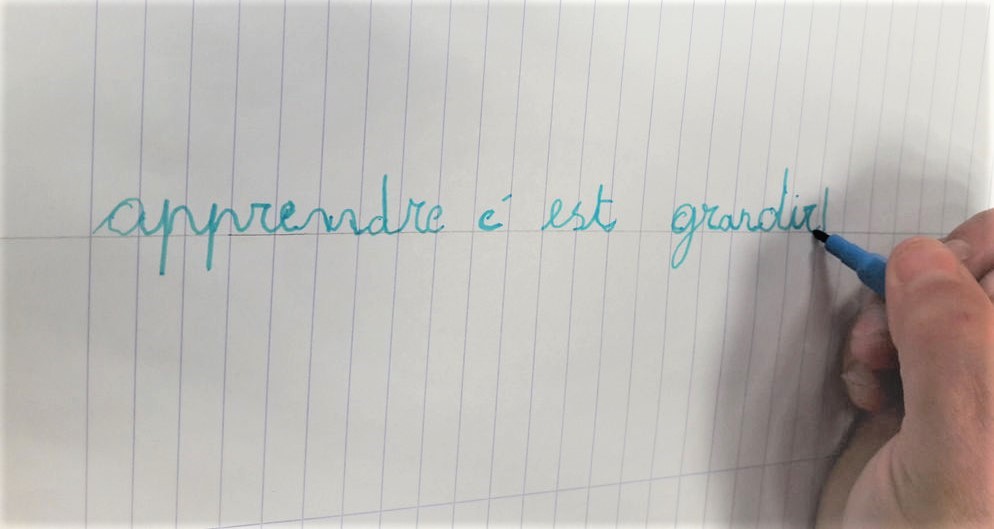 apprendre c'est grandir!